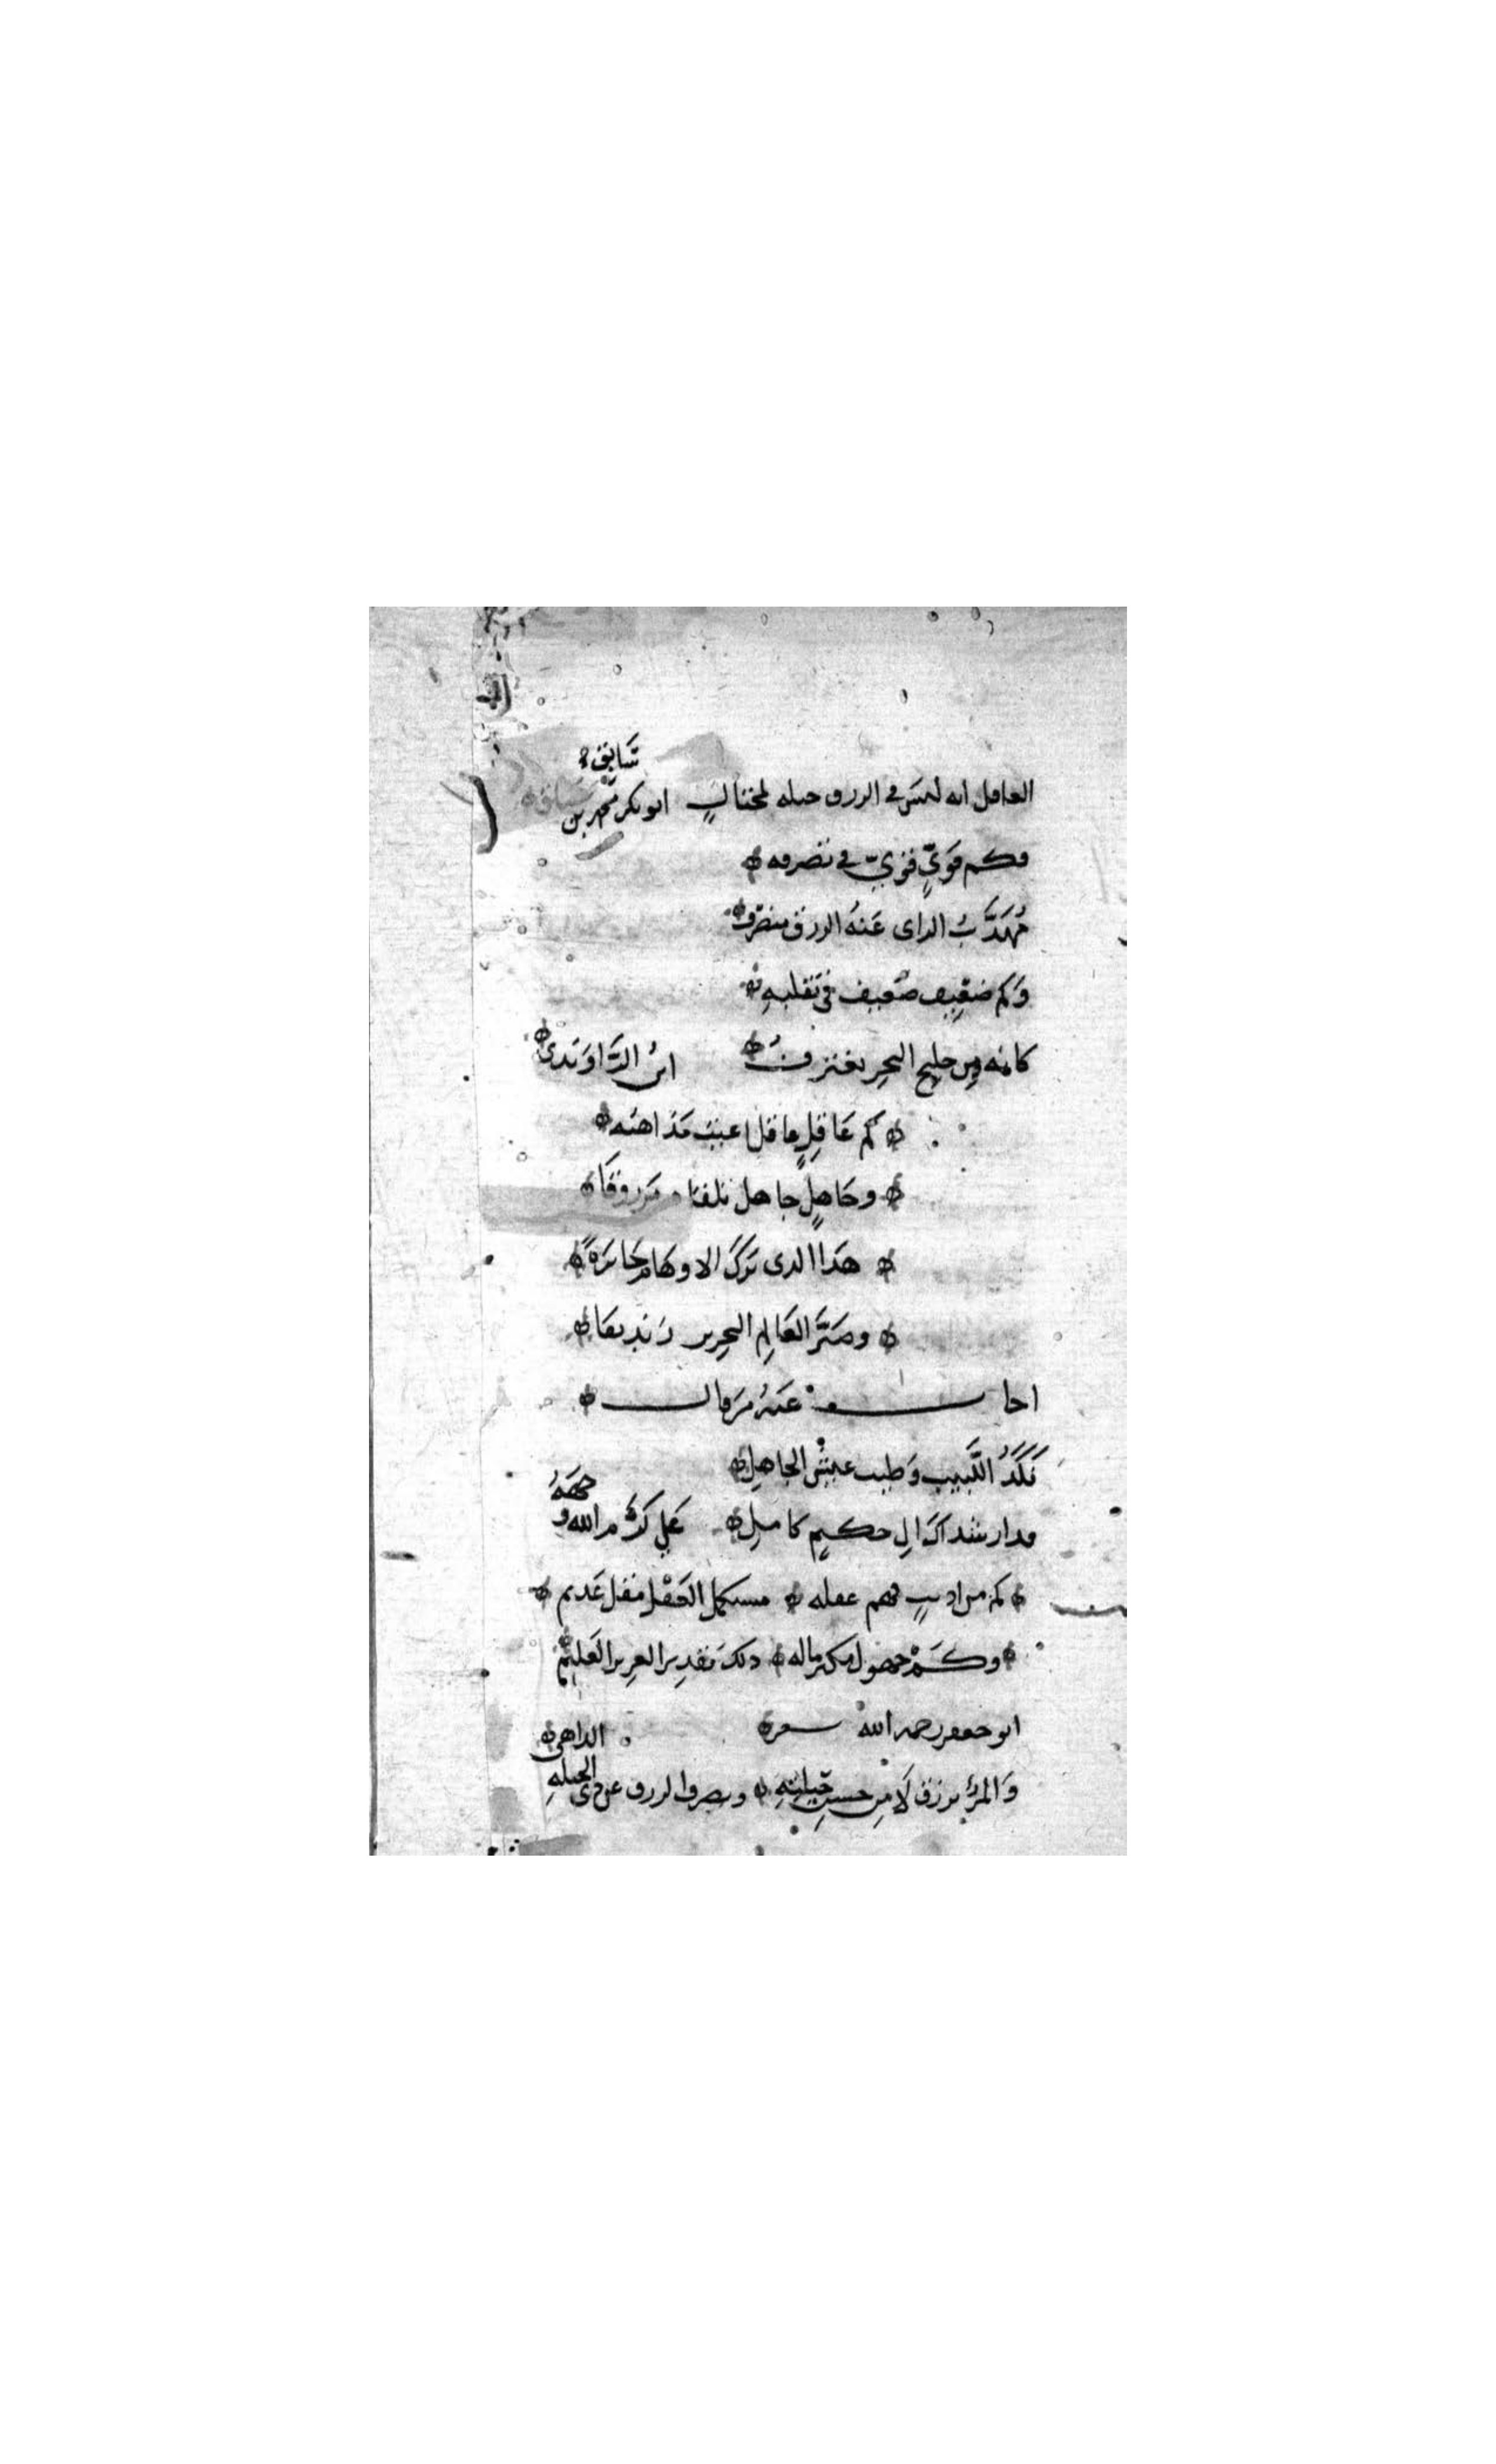 سابق
العاقل انه ليس في الرزق حيله لمحتال ابو بكر محمد بن سابق
وكم قويٍّ قويّ في تصرفه
مُهَذَّبُ الراى عَنهُ الرزق منصرف
وَكم ضعيفٍ ضعيف في تقلبهِ
كانه مِن خليج البحر يغترفُ ابنُ الرَّاوَندى
كم عَاقِلٍ عاقل اعيت مَذاهبُه
وجَاهلٍ جاهل تلقاه مَرزوقَا
هَذا الذى تركَ الاوهام حَائرةً
وصَيَّر العَالِم النحرير زنديقَا
اجاب عَنهُ مَن قال
نَكَدُ اللَّبيبِ وَطيب عيش الجاهلِ
قد ارشداكَ الى حكيمٍ كاملِ عَلي كَرَّم الله وجهَهُ
كم من اديبٍ فهم عقله مستكمل العَقْل مقل عَديم
وكَمْ جهول مكثر ماله ذلكَ تقدير العزيز العَليم
ابو جعفر رحمه الله شعره
وَالمرءُ يرزق لَا مِن حسنِ حيلتِهِ ويصرف الرزق عن ذى الحيلهِ الداهى